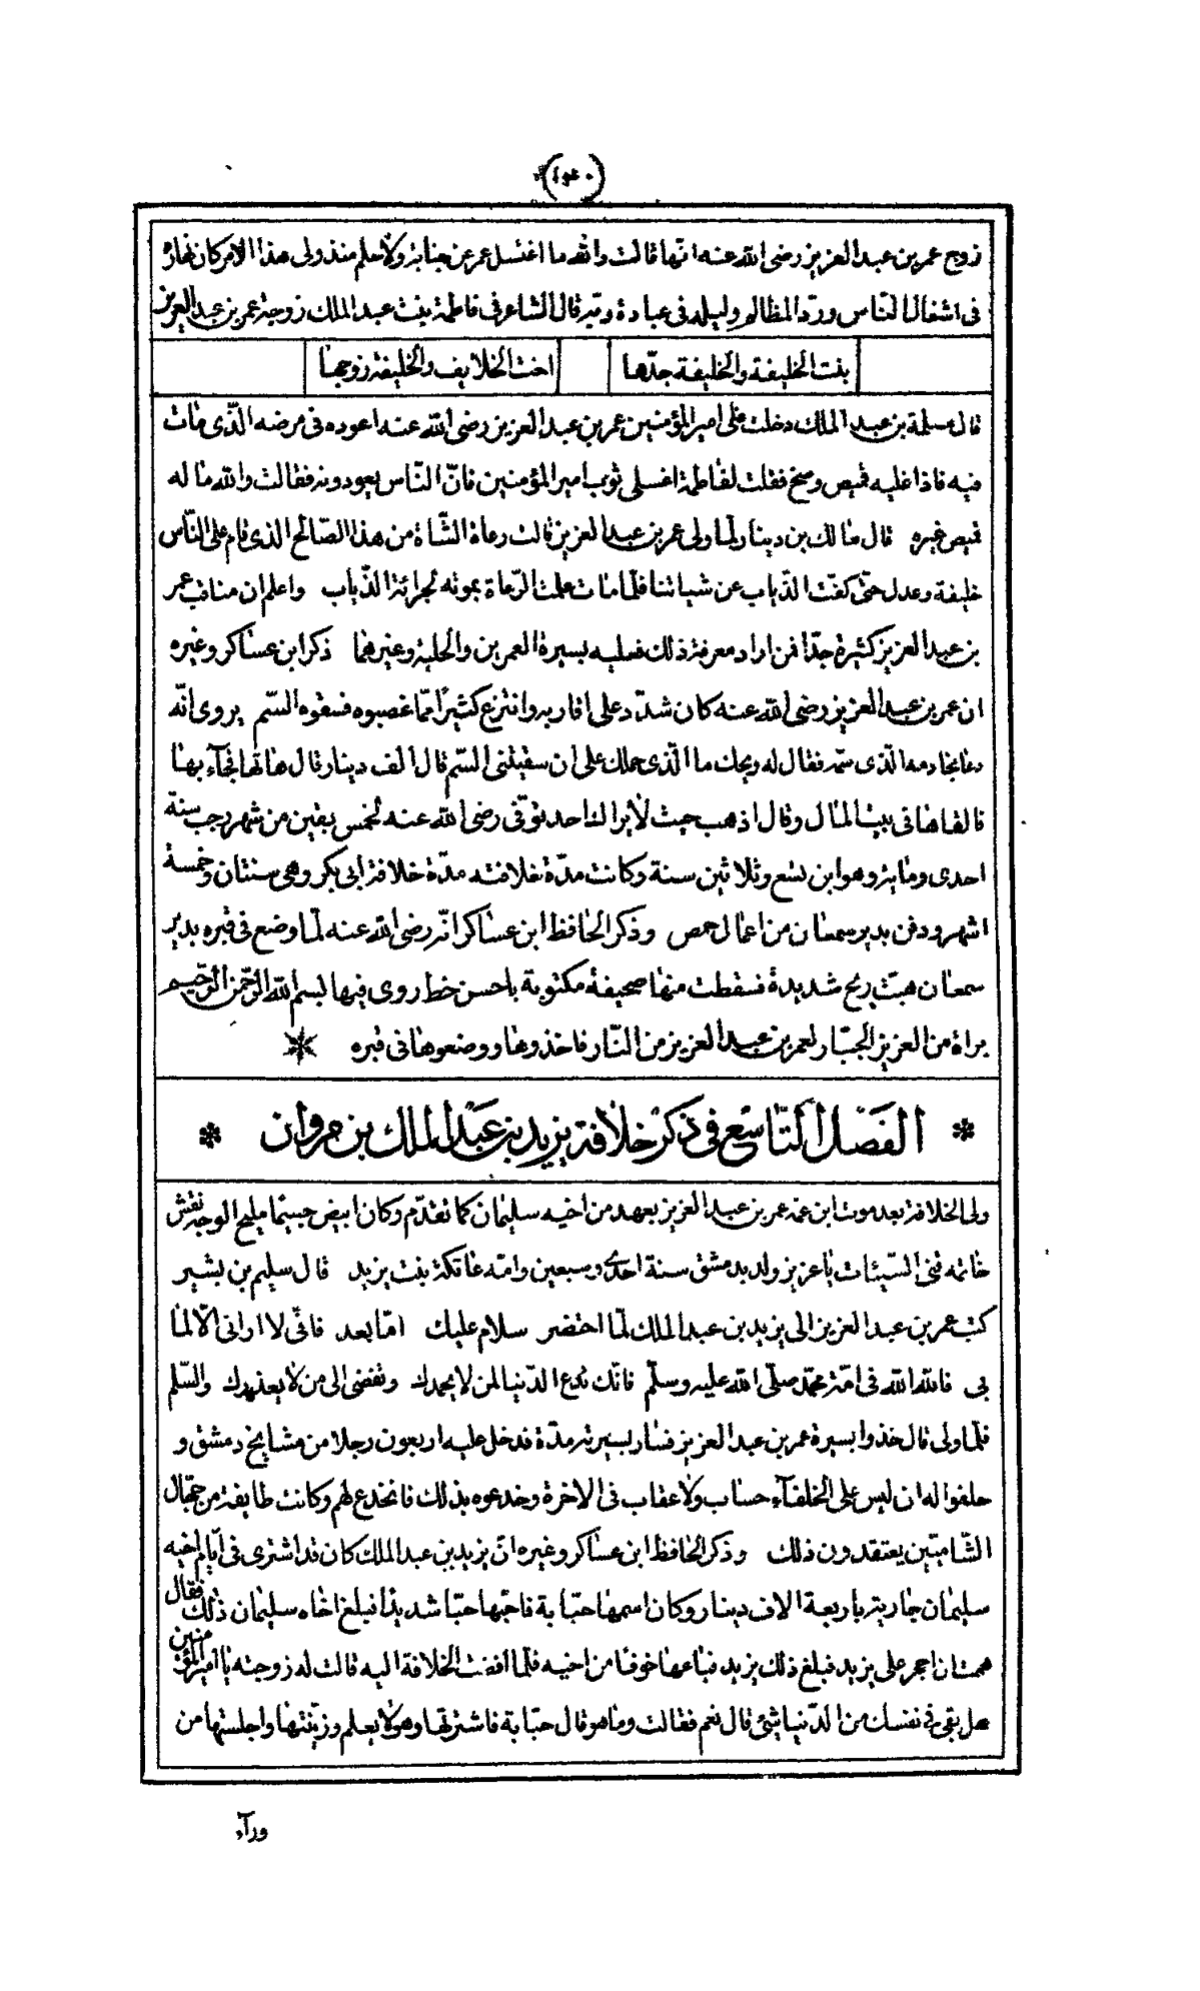 زوج عمر بن عبد العزيز رضى الله عنه انّها قالت والله ما اغتسل عمر عن جنابة ولا حلم منذ ولى هذا الامر كان نهاره
فى اشغال النّاس وردّ المظالم وليله فى عبادة ربّه قال الشاعر فى فاطمة بنت عبد الملك زوجة عمر بن عبد العزيز
بنت الخليفة والخليفة جدّها اخت الخلايف والخليفة زوجها
قال مسلمة بن عبد الملك دخلت على امير المؤمنين عمر بن عبد العزيز رضى الله عنه اعوده فى مرضه الّذى مات
فيه فاذا عليه قميص وسخ فقلت لفاطمة اغسلى ثوب امير المؤمنين فانّ النّاس يعودونه فقالت والله ما له
قميص غيره قال مالك بن دينار لمّا ولى عمر بن عبد العزيز قالت رعاة الشّاة من هذا الصّالح الذى قام على النّاس
خليفة وعدل حتّى كفّت الذّياب عن شياتنا فلمّا مات علمت الرّعاة بموته لجراءة الذّياب واعلم ان مناقب عمر
بن عبد العزيز كثيرة جدّا فمن اراد معرفة ذلك فعليه بسيرة العمرين والحلية وغيرهما ذكر ابن عساكر وغيره
ان عمر بن عبد العزيز رضى الله عنه كان شدّد على اقاربه وانتزع كثيرًا ممّا غصبوه فسقوه السّم يروى انّه
دعا بخادمه الّذى سمّه فقال له ويحك ما الّذى حملك على ان سقيتنى السّم قال الف دينار قال هاتها فجآء بها
فالقاها فى بيت المال وقال اذهب حيث لا يراك احد توفّى رضى الله عنه لخمس بقين من شهر رجب سنة
احدى ومائة وهو ابن تسع وثلاثين سنة وكانت مدّة خلافته مدّة خلافة ابى بكر وهى سنتان وخمسة
اشهر ودفن بدير سمعان من اعمال حمص وذكر الحافظ ابن عساكر انّه رضى الله عنه لمّا وضع فى قبره بدير
سمعان هبّت ريح شديدة فسقطت منها صحيفة مكتوبة باحسن خط روى فيها بسم الله الرّحمن الرّحيم
براة من العزيز الجبّار لعمر بن عبد العزيز من النّار فاخذوها ووضعوها فى قبره
الفَصْل التّاسع فى ذكر خلافة يزيد بن عبد الملك بن مروان
ولى الخلافة بعد موت ابن عمه عمر بن عبد العزيز بعهد من اخيه سليمان كما تقدّم وكان ابيض جسيمًا مليح الوجه نقش
خاتمه قنى السّيئات يا عزيز ولد بدمشق سنة احدى وسبعين وامّه عاتكة بنت يزيد قال سليم بن بشير
كتب عمر بن عبد العزيز الى يزيد بن عبد الملك لمّا احتضر سلام عليك امّا بعد فانّى لا ارانى الّا لما
بى فالله الله فى امّة محمّد صلّى الله عليه وسلّم فانّك تدع الدّنيا لمن لا يحمدك وتفضى الى من لا يعذرك والسّلم
فلمّا ولى قال خذوا بسيرة عمر بن عبد العزيز فسار بسيرته مدّة فدخل عليه اربعون رجلا من مشايخ دمشق و
حلفوا له ان ليس على الخلفآء حساب ولا عقاب فى الاخرة وخدعوه بذلك فانخدع لهم وكانت طايفة من جهّال
الشّاميّين يعتقدون ذلك وذكر الحافظ ابن عساكر وغيره انّ يزيد بن عبد الملك كان قد اشترى فى ايّام اخيه
سليمان جارية باربعة الاف دينار وكان اسمها حبّابة فاحبّها حبّا شديدًا فبلغ اخاه سليمان ذلك فقال
هممت ان احجر على يزيد فبلغ ذلك يزيد فباعها خوفًا من اخيه فلمّا افضت الخلافة اليه قالت له زوجته يا امير المؤمنين
هل بقى فى نفسك من الدّنيا شئ قال نعم فقالت وما هو قال حبّابة فاشترتها وهو لا يعلم وزيّنتها واجلستها من
ورآء